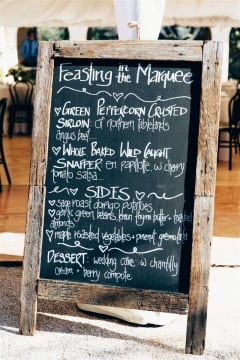 Feasting in the Marquee
Green Peppercorn Crusted
Sirloin of northern tablelands
angus beef
Whole Baked Wild Caught
Snapper en papillote, w cherry
tomato salsa
SIDES
sage roast potatoes
garlic green beans, lemon thyme butter + toasted
almonds
maple roasted vegetables +
DESSERT: wedding cake w chantilly
cream + berry compote